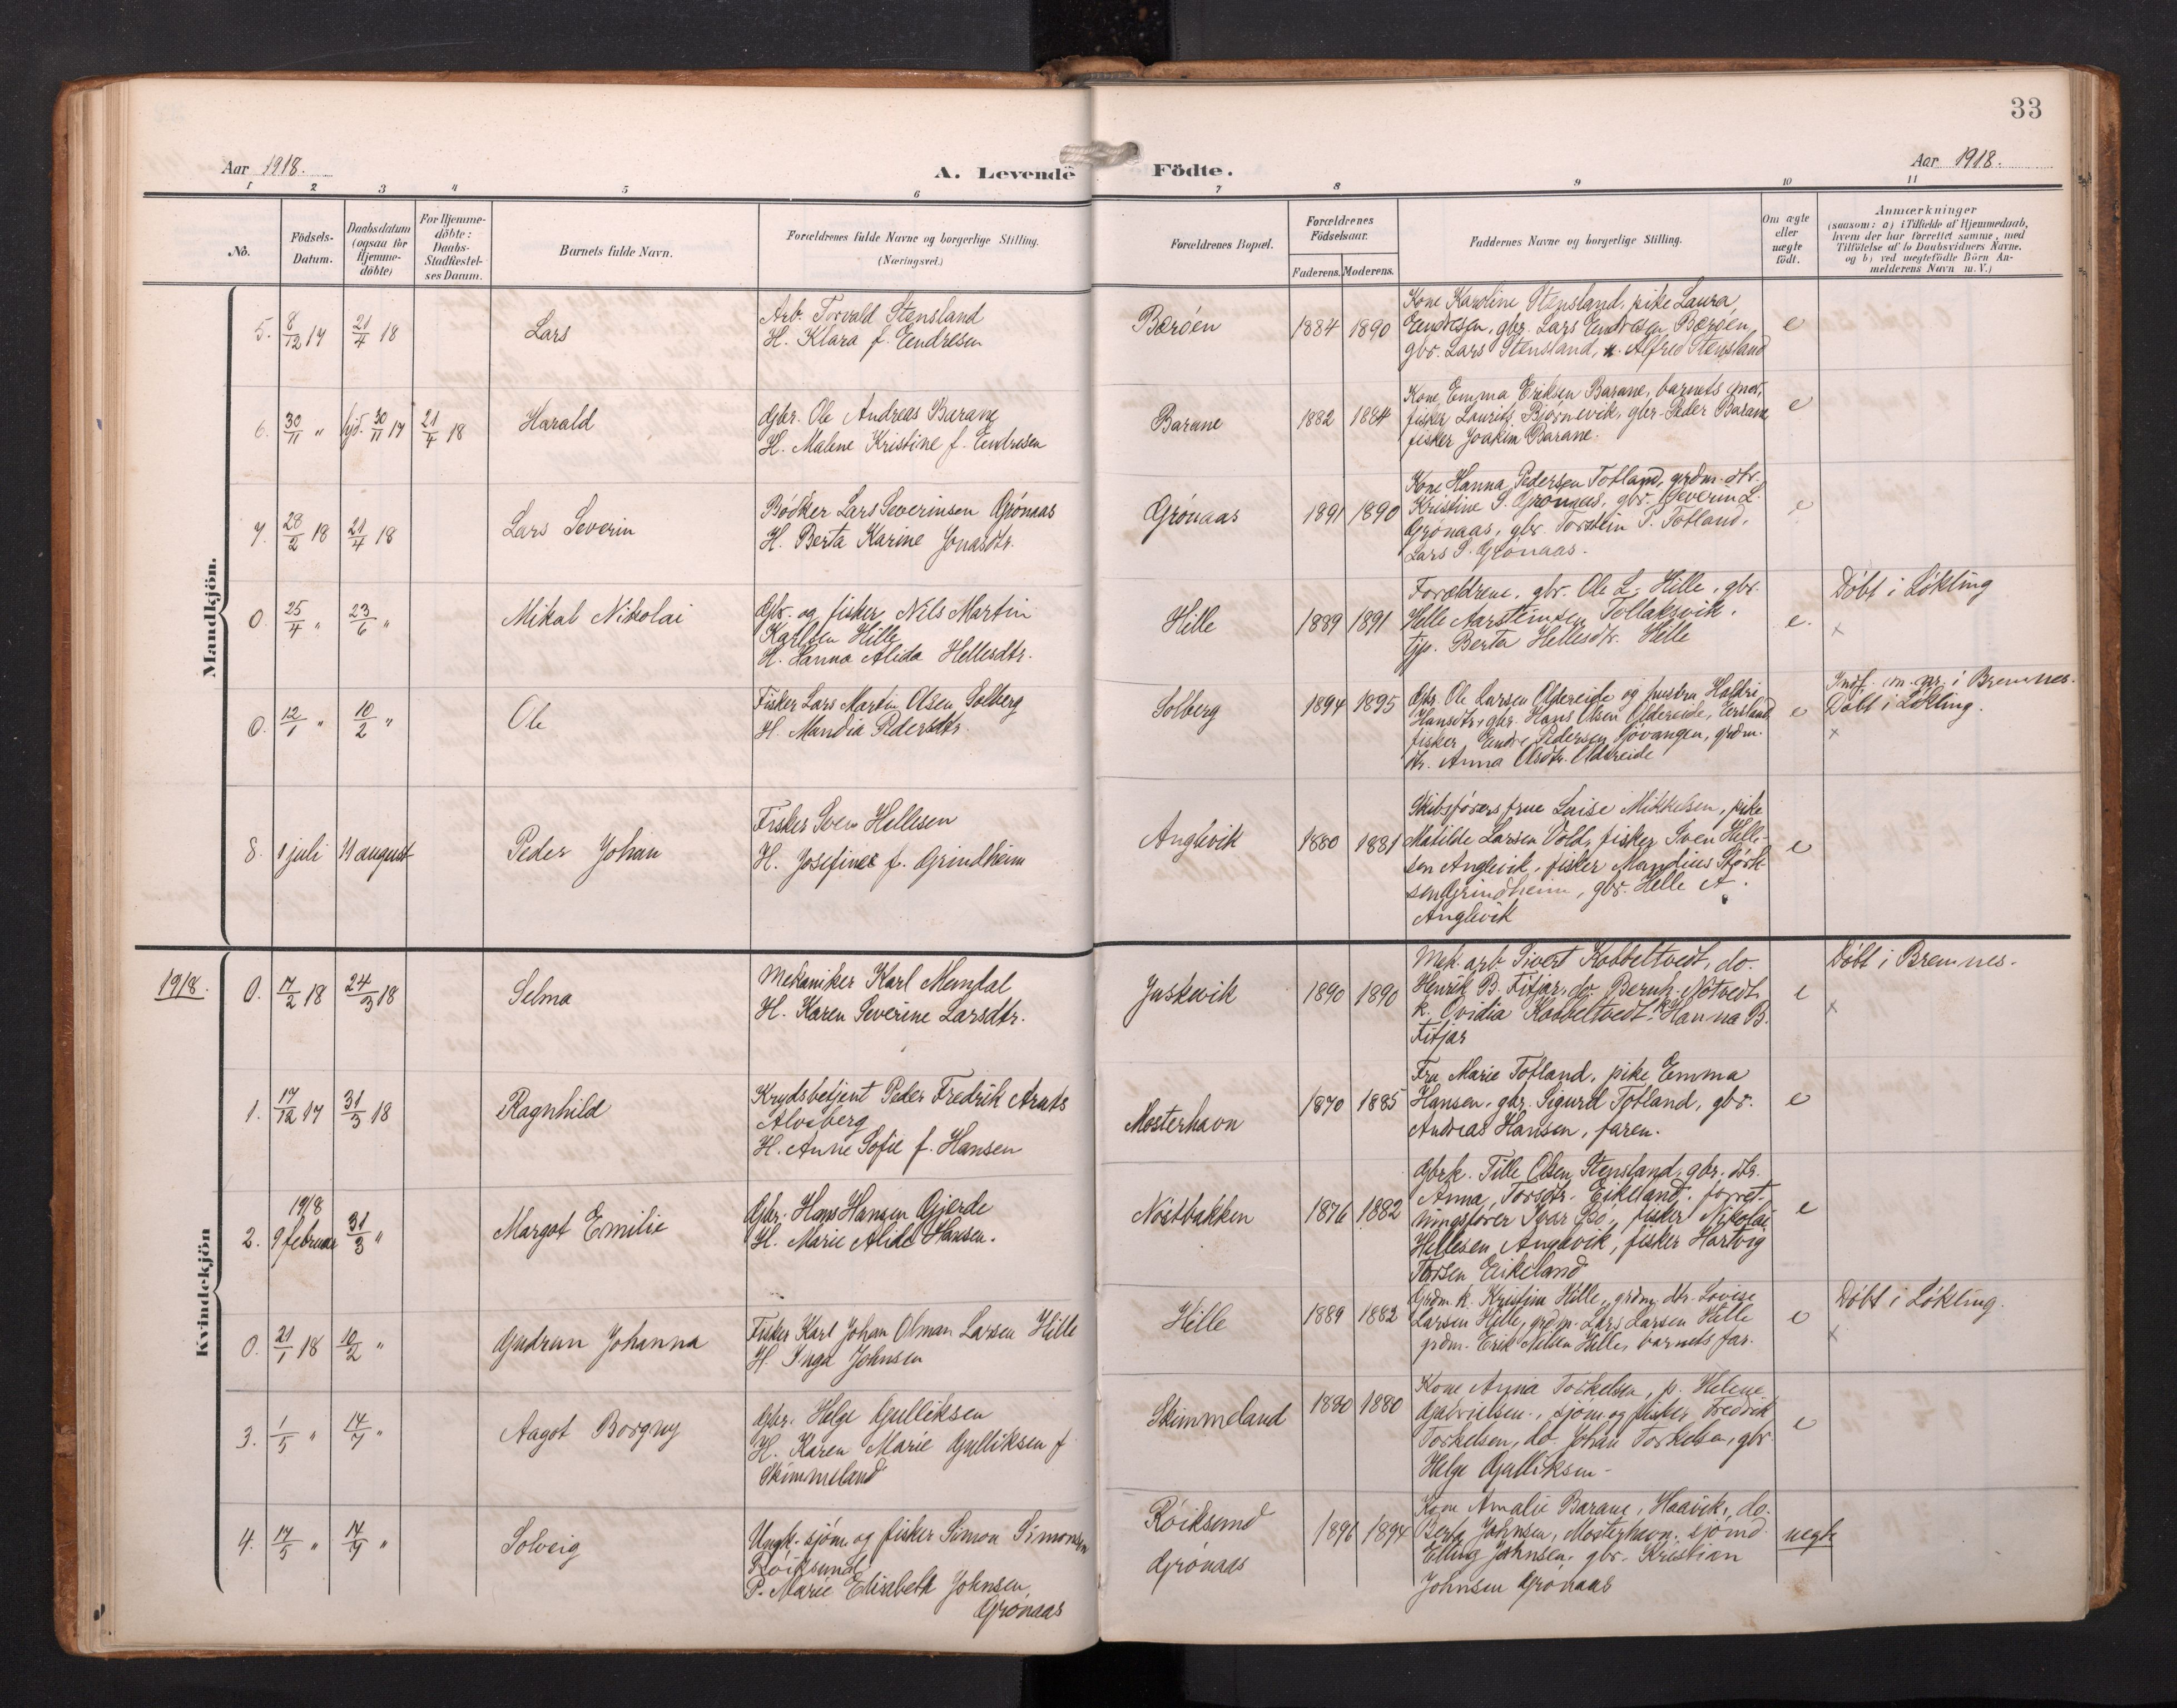 33
Aar 1918.
A. Levende Födte.
Aar 1918.
1 2 3 4 5 6 7 8 9 10 11
No.
Födsels-
Datum.
Daabsdatum
(ogsaa for
Hjemme-
döbte)
For Hjemme-
döbte:
Daabs-
Stadfæstel-
ses Datum.
Barnets fulde Navn.
Forældrenes fulde Navne og borgerlige Stilling.
(Næringsvei.)
Forældrenes Bopæl.
Forældrenes
Födselsaar.
Faderens. Moderens.
Faddernes Navne og borgerlige Stilling.
Om ægte
eller
uægte
födt.
Anmærkninger
(saasom: a) i Tilfælde af Hjemmedaab,
hvem der har forrettet samme, med
Tilföielse af to Daabsvidners Navne.
og b) ved uægtefödte Börn An-
melderens Navn m. V.)
Mandkjön.
5. 8/12 17 21/4 18
Lars
Arb. Torvald Stensland
H. Klara f. Endresen
Børøen
1884 1890
Kone Karoline Stensland, pike Laura
Endresen, gbr. Lars Endresen Børøen,
gbr. Lars Stensland, Alfred Stensland
e
6. 30/11 " hjd. 30/11 17 21/4 18
Harald
Gbr. Ole Andreas Barane
H. Malene Kristine f. Endresen
Barane
1882 1884
Kone Emma Eriksen Barane, barnets mor,
fisker Laurits Bjørnevik, gbr. Peder Barane
fisker Joakim Barane.
e
7. 28/2 18 21/4 18
Lars Severin
Bødker Lars Severinsen Grønaas
H. Berta Karine Jonasdtr.
Grønaas
1891 1890
Kone Hanna Pedersen Totland, grdm. dtr.
Kristine S. Grønaas, gbr. Severin L.
Grønaas, gbr. Torstein P. Totland,
Lars S. Grønaas.
e
0. 25/4 " 23/6 "
Mikal Nikolai
Gbr. og fisker Nils Martin
Karlsen Hille
H. Hanna Alida Hellesdtr.
Hille
1889 1891
Forældrene, gbr. Ole L. Hille, gbr.
Helle Aarsteinsen Tollaksvik,
tjp. Berta Hellesdtr. Hille
e.
Døbt i Løkling
x
0. 12/1 " 10/2 "
Ole
Fisker Lars Martin Olsen Solberg
H. Mandia Pedersdtr.
Solberg
1894 1895
Gbr. Ole Larsen Oldereide og hustru
Hansdtr., gbr. Hans Olsen Oldereide,
fisker Endre Pedersen Sjovangen, grdm.
dtr. Anna Olsdtr. Oldereide
e
Indf. m. nr. i Bremnes.
Døbt i Løkling.
x
8. 8 juli 11 august
Peder Johan
Fisker Sven Hellesen
H. Josefine f. Grindheim
Anglevik
1880 1881
Skibsførers frue Luise Mikkelsen, pike
Matilde Larsen Vold, fisker Sven Helle-
sen Anglevik, fisker Mandius Størk-
sen Grindheim, gbr. Helle A.
Anglevik
e
Kvindekjön
1918.
0. 17/2 18 24/3 18
Selma
Mekaniker Karl Mandal
H. Karen Severine Larsdtr.
Juskevik
1890 1890
Mek. arb. Sivert Kobbeltvedt, do.
Henrik B. Fitjar, do. Bernh. Nøtvedt,
k. Ovidia Kobbeltvedt, k. Hanna B.
Fitjar
e
Døbt i Bremnes.
x
1. 17/12 17 31/3 18
Ragnhild
Krydsbetjent Peder Fredrik
Alvsberg
H. Anne Sofie f. Hansen
Mosterhavn
1870 1885
Fru Marie Totland, pike Emma
Hansen, gbr. Sigurd Totland, gbr.
Andreas Hansen, faren.
e
1918
2. 9 februar 31/3 "
Margot Emilie
Gbr. Hans Hansen Gjerde
H. Marie Alida Hansen.
Nøstbakken
1876 1882
Gbrk. Tille Olsen Stensland, gbr. dtr.
Anna Torsdtr. Eikeland, forret-
ningsfører Ivar Bø, fisker Nikolai
Hellesen Anglevik, fisker Hartvig
Torsen Eikeland
e
0. 21/1 18 10/2 "
Gudrun Johanna
Fisker Karl Johan Olman Larsen Hille
H. Inga Johnsen
Hille
1889 1882
Grdm. k. Kristine Hille, grdm. dtr. Lovise
Larsen Hille, grdm. Lars Larsen Hille
grdm. Erik Nilsen Hille, barnets far.
e
Døbt i Løkling.
x
3. 1/5 " 14/7 "
Aagot Borgny
Gbr. Helge Gulliksen
H. Karen Marie Gulliksen f.
Skimmeland
Skimmeland
1880 1880
Kone Anna Torkelsen, p. Helene
Gabrielsen, sjøm. og fisker Fredrik
Torkelsen, do. Johan Torkelsen, gbr.
Helge Gulliksen
e
4. 17/5 " 14/7 "
Solveig
Ungk. sjøm. og fisker Simon Simonsen
Røiksund
P. Marie Elisabeth Johnsen
Grønaas
Røiksund
Grønaas
1896 1894
Kone Amalie Barane, Haavik, do.
Berta Johnsen, Mosterhavn, sjømd.
Elling Johnsen, gbr. Kristian
Johnsen Grønaas
uegte